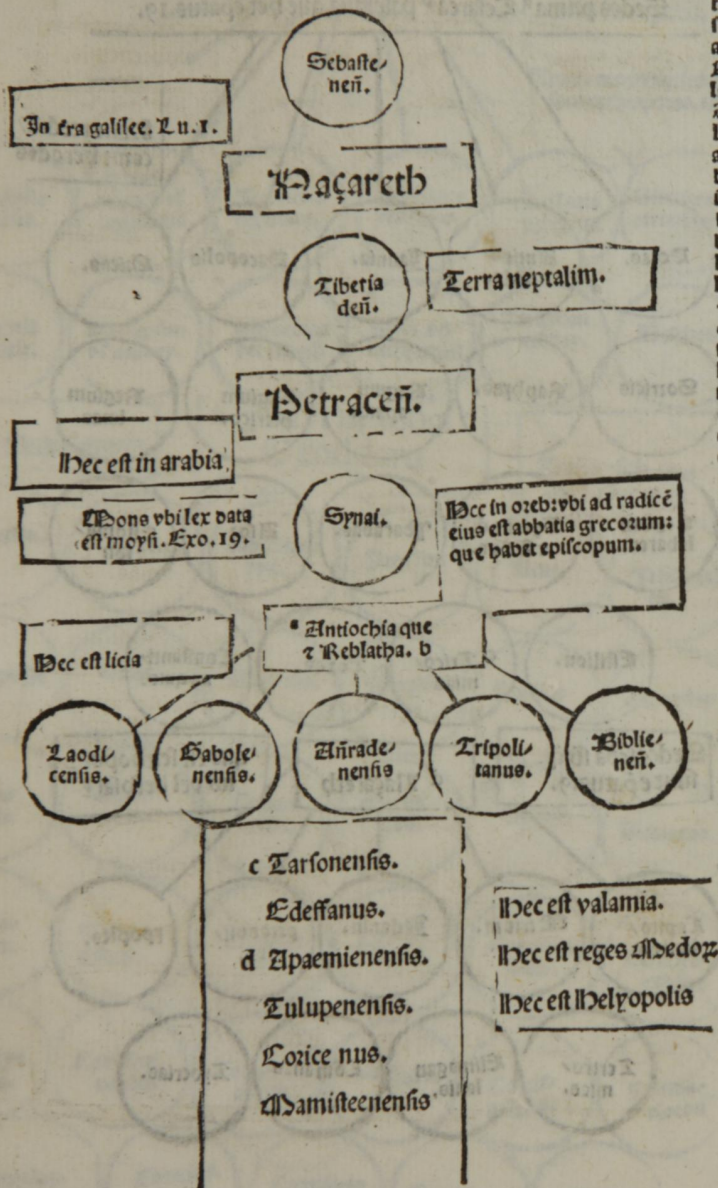 Sebaste⸗
nen̄.
In t̄ra galilee. Lu. 1.
Naçareth
Tiberia
den̄.
Terra neptalim.
Petracen̄.
Hec est in arabia
Mons vbi lex data
est moysi. Exo. 19.
Synai.
Hec in oreb: vbi ad radicē
eius est abbatia grecorum:
que habet episcopum.
Antiochia que
⁊ Reblatha. b
Hec est licia
Laodi⸗
censis.
Gabole⸗
nensis.
Añrade⸗
nensis
Tripoli⸗
tanus.
Biblie⸗
nen̄.
c Tarsonensis.
Edessanus.
d Apaemienensis.
Tulupenensis.
Corice nus.
Mamisteenensis
Hec est valamia.
Hec est reges Medoꝝ
Hec est Helyopolis